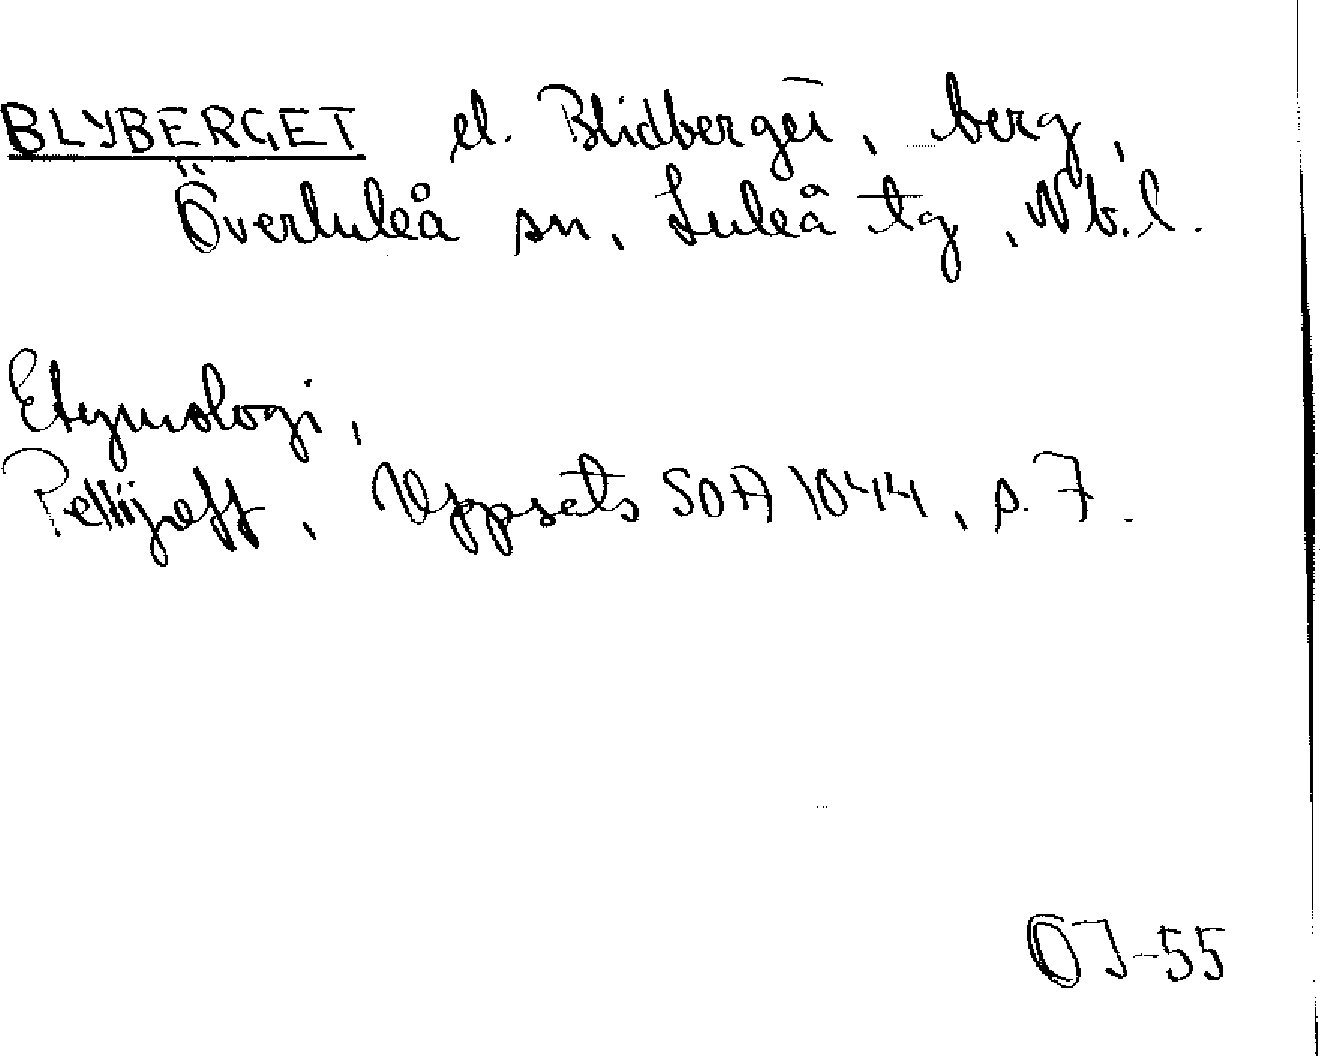 BLYBERGET el. Blidberget, berg,
Överluleå sn, Luleå tg, Nb.l.
Etymologi,
Pellijeff, Uppsats SOA 1044, s. 7.
OJ-55